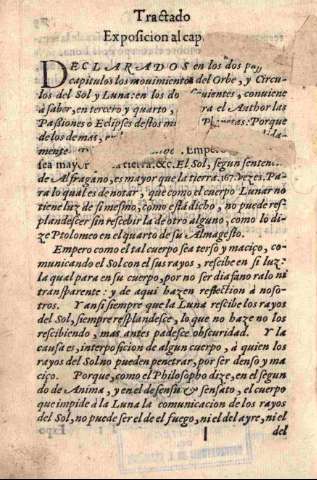 Tractado
Exposicion al cap.
DECLARADOS en los dos
capitulos los movimientos del Orbe, y Circu-
los del Sol y Luna: en los do uientes, conviene
à saber, en tercero y quarto, ra el Author las
Paßiones o Eclipses destos mi netas: Porque
de los de mas,
mense Empe
sea mayor tierra. &c. El Sol, segun senten
de Alfragano, es mayor que la tierra. 167. vezes. Pa-
ra lo qual es de notar, que como el cuerpo Lunar no
tiene luz de si mesmo, como està dicho, no puede res-
plandescer sin rescebir la de otro alguno, como lo di-
ze Ptolomeo en el quarto de su Almagesto.
Empero como el tal cuerpo sea terso y maciço, co-
municando el Sol con el sus rayos, rescibe en si luz:
la qual para en su cuerpo, por no ser diafano ralo ni
transparente: y de aqui hazen reflection à noso-
tros. Y ansi siempre que la Luna rescibe los rayos
del Sol, siempre resplandesce, lo que no haze no los
rescibiendo, mas antes padesce obscuridad. Y la
causa es, interposicion de algun cuerpo, à quien los
rayos del Sol no pueden penetrar, por ser denso y ma
ciço. Porque, como el Philosopho dize, en el segun
do de Anima, y en el de sensu & sensato, el cuerpo
que impide à la Luna la comunicacion de los rayos
del Sol, no puede ser el de el fuego, ni el del ayre, ni el
del